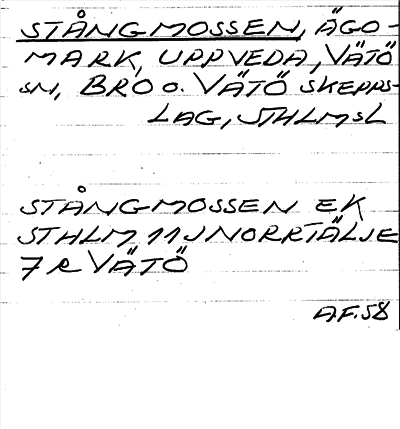 STÅNGMOSSEN, ÄGO-
MARK, UPPVEDA, VÄTÖ
SN, BRO O. VÄTÖ SKEPPS-
LAG, STHLMSL
STÅNGMOSSEN EK
STHLM 11J NORRTÄLJE
7 R VÄTÖ
A.F. 58